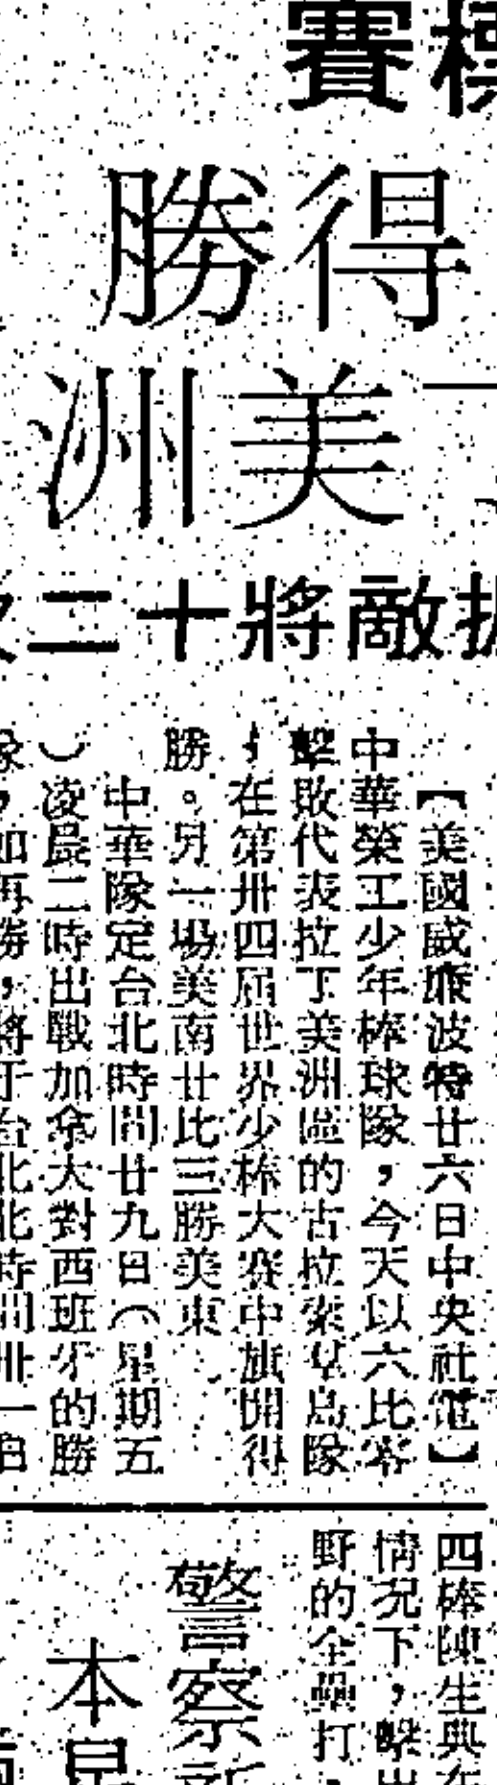 賽
得勝
美洲
敵將十二
【美國威廉波特廿六日中央社電】
中華榮工少年棒球隊，今天以六比零
擊敗代表拉丁美洲區的古拉索羣島隊
，在第卅四屆世界少棒大賽中旗開得
勝。另一場美南廿比三勝美東。
中華隊定台北時間廿九日（星期五
）凌晨二時出戰加拿大對西班牙的勝
，如再勝，將于台北時間卅一
四棒陳生典在
情況下，擊出
野的全壘打，
警察
本